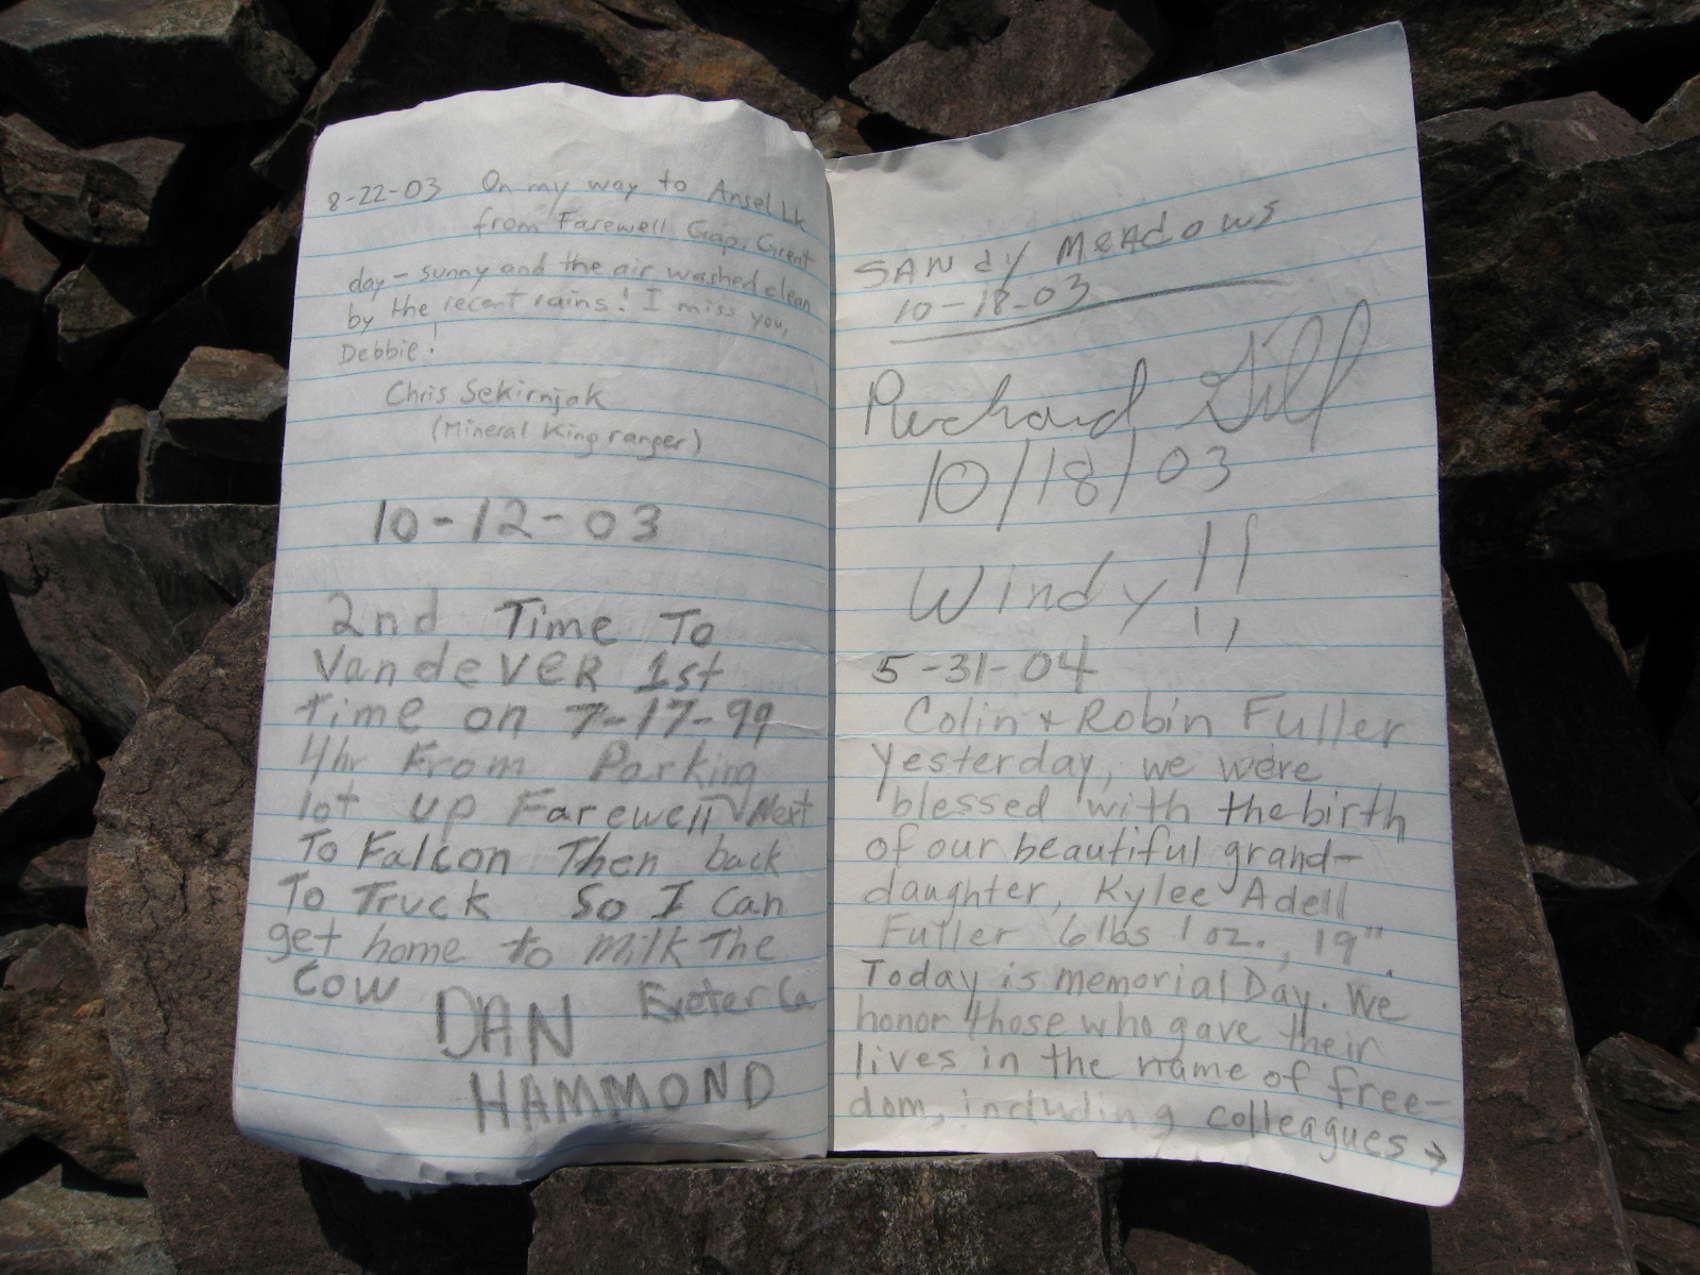 8-22-03 On my way to Ansel Lk
from Farewell Gap. Great
day - sunny and the air washed clean
by the recent rains! I miss you,
Debbie!
Chris Sekirnjak
(Mineral King ranger)
10-12-03
2nd Time To
VandeVER 1st
time on 7-17-99
4hr From Parking
lot up Farewell Next
To Falcon Then back
To Truck So I Can
get home to milk The
Cow
Exeter Ca
DAN
HAMMOND
SANdy MEAdows
10-18-03
Richard Gill
10/18/03
Windy!!
5-31-04
Colin + Robin Fuller
Yesterday, we were
blessed with the birth
of our beautiful grand-
daughter, Kylee Adell
Fuller 6 lbs 1 oz., 19".
Today is memorial Day. We
honor those who gave their
lives in the name of free-
dom, including colleagues →